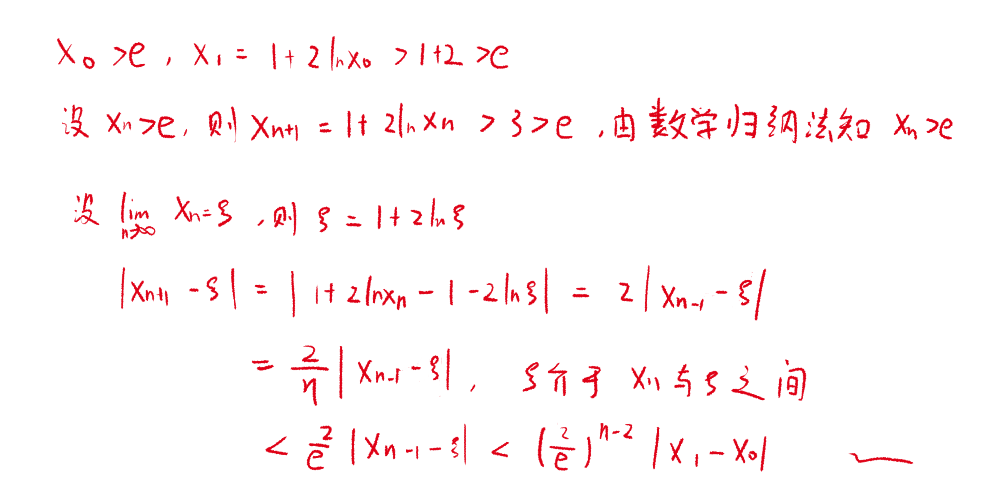 x₀ >e , x₁ = 1+2lnx₀ >1+2 >e
设 xₙ>e, 则 xₙ₊₁ = 1+2lnxₙ > 3>e , 由数学归纳法知 xₙ>e
设 lim xₙ=ξ , 则 ξ = 1+2lnξ
n→∞
|xₙ₊₁ - ξ| = |1+2lnxₙ - 1 - 2lnξ| = 2|xₙ₋₁ - ξ|
= 2/η |xₙ₋₁ - ξ| , ξ介于 xₙ 与 ξ 之间
< 2/e |xₙ₋₁ - ξ| < (2/e)ⁿ⁻² |x₁ - x₀|